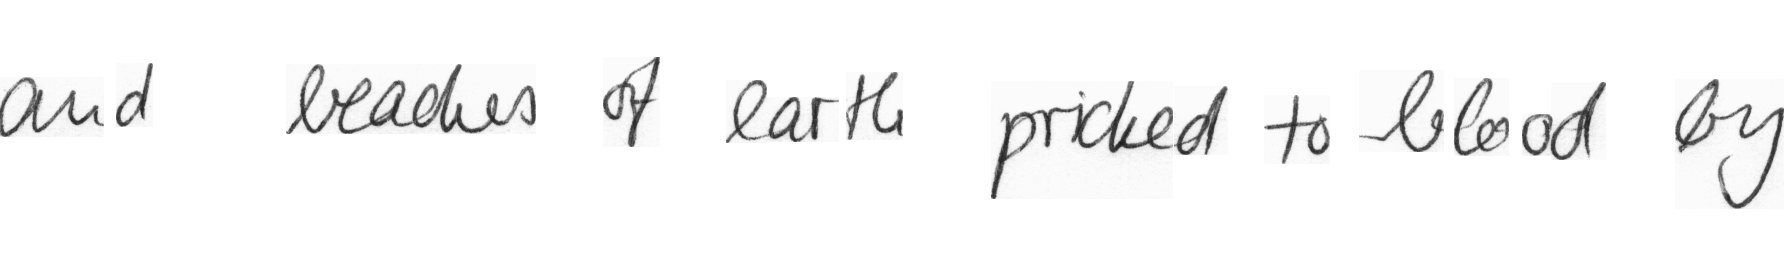 and beaches of earth pricked to blood by